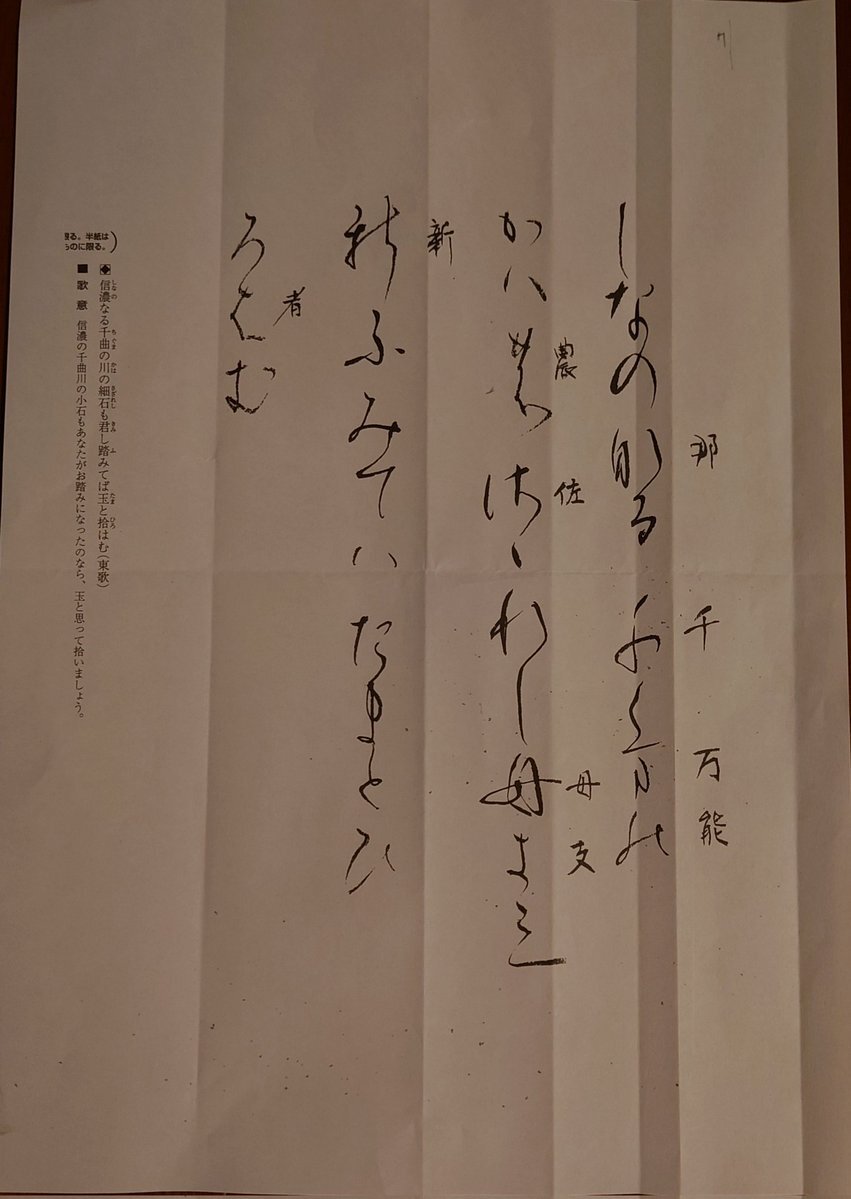 しなの那る千く万能
那
千
万
能
かは農佐ゝれし母支み
農
佐
母
支
新ふみてハたまとひ
新
ろ者む
者
◆信濃なる千曲の川の細石も君し踏みてば玉と拾はむ(東歌)
■歌意 信濃の千曲川の小石もあなたがお踏みになったのなら、玉と思って拾いましょう。
る。半紙は)
のに限る。